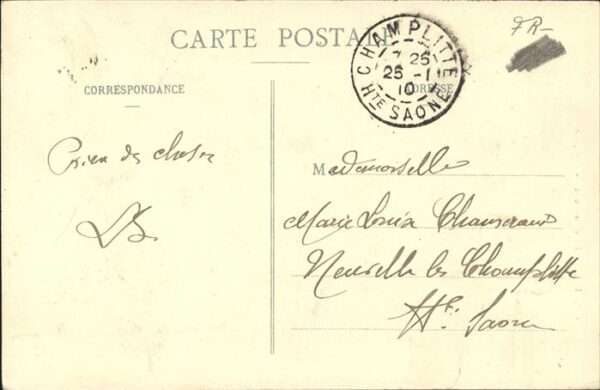 CARTE POSTALE
FR-
CHAMPLITTE
7 25
25 -1
10
Hte SAONE
CORRESPONDANCE
ADRESSE
de
Mademoiselle
Marie Louise
Neuvelle les Champlitte
Hte Saone